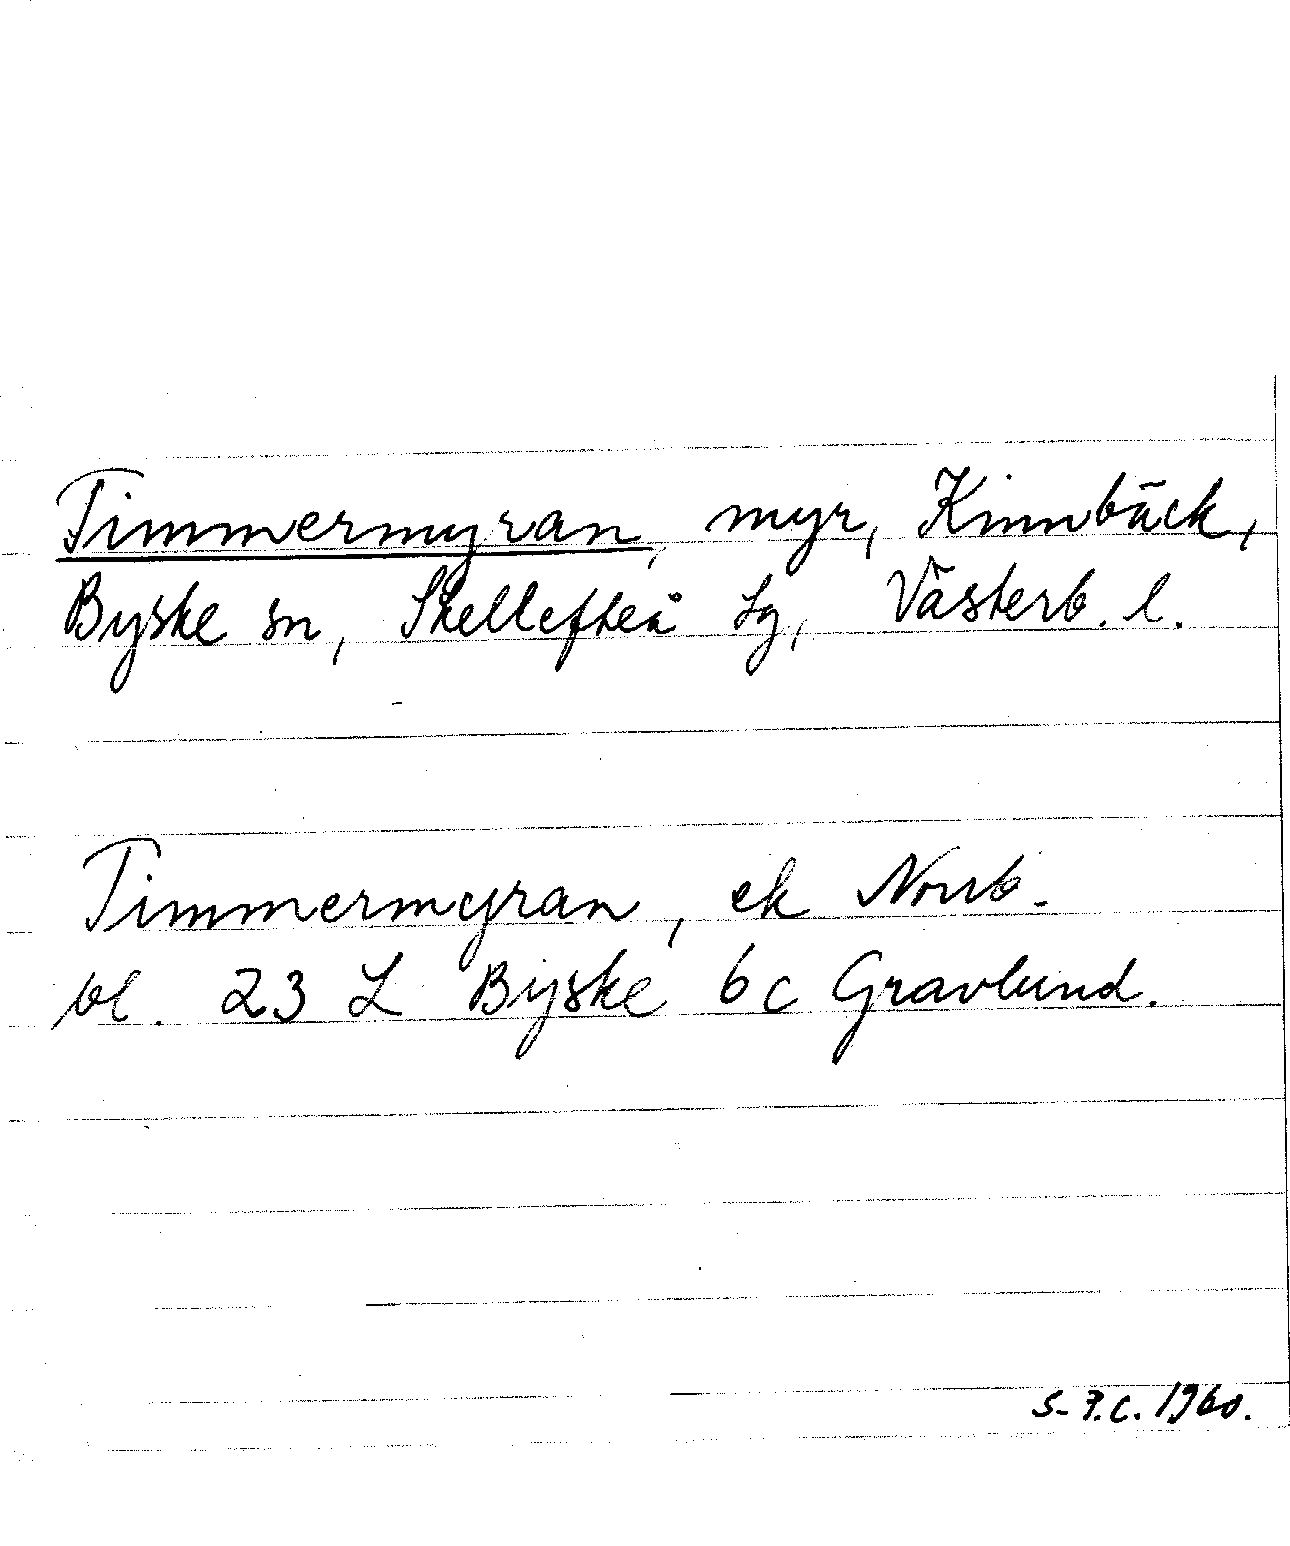 Timmermyran, myr, Kinnbäck,
Byske sn, Skellefteå tg, Västerb. l.
Timmermyran, ek Norrb.
bl. 23 L Byske 6c Gravlund.
1960.